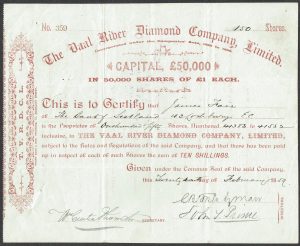 No. 359 150 Shares.
The Vaal River Diamond Company, Limited.
CAPITAL, £50,000
IN 50,000 SHARES OF £1 EACH.
This is to Certify that James Hair
of The Bank of Scotland
is the Proprietor of One hundred fifty Shares, Numbered 41383 to 41532
inclusive, in THE VAAL RIVER DIAMOND COMPANY, LIMITED,
subject to the Rules and Regulations of the said Company, and that there has been paid
up in respect of each of such Shares the sum of TEN SHILLINGS.
Given under the Common Seal of the said Company,
this day of February
SECRETARY.
T. V. R. D. C. L.